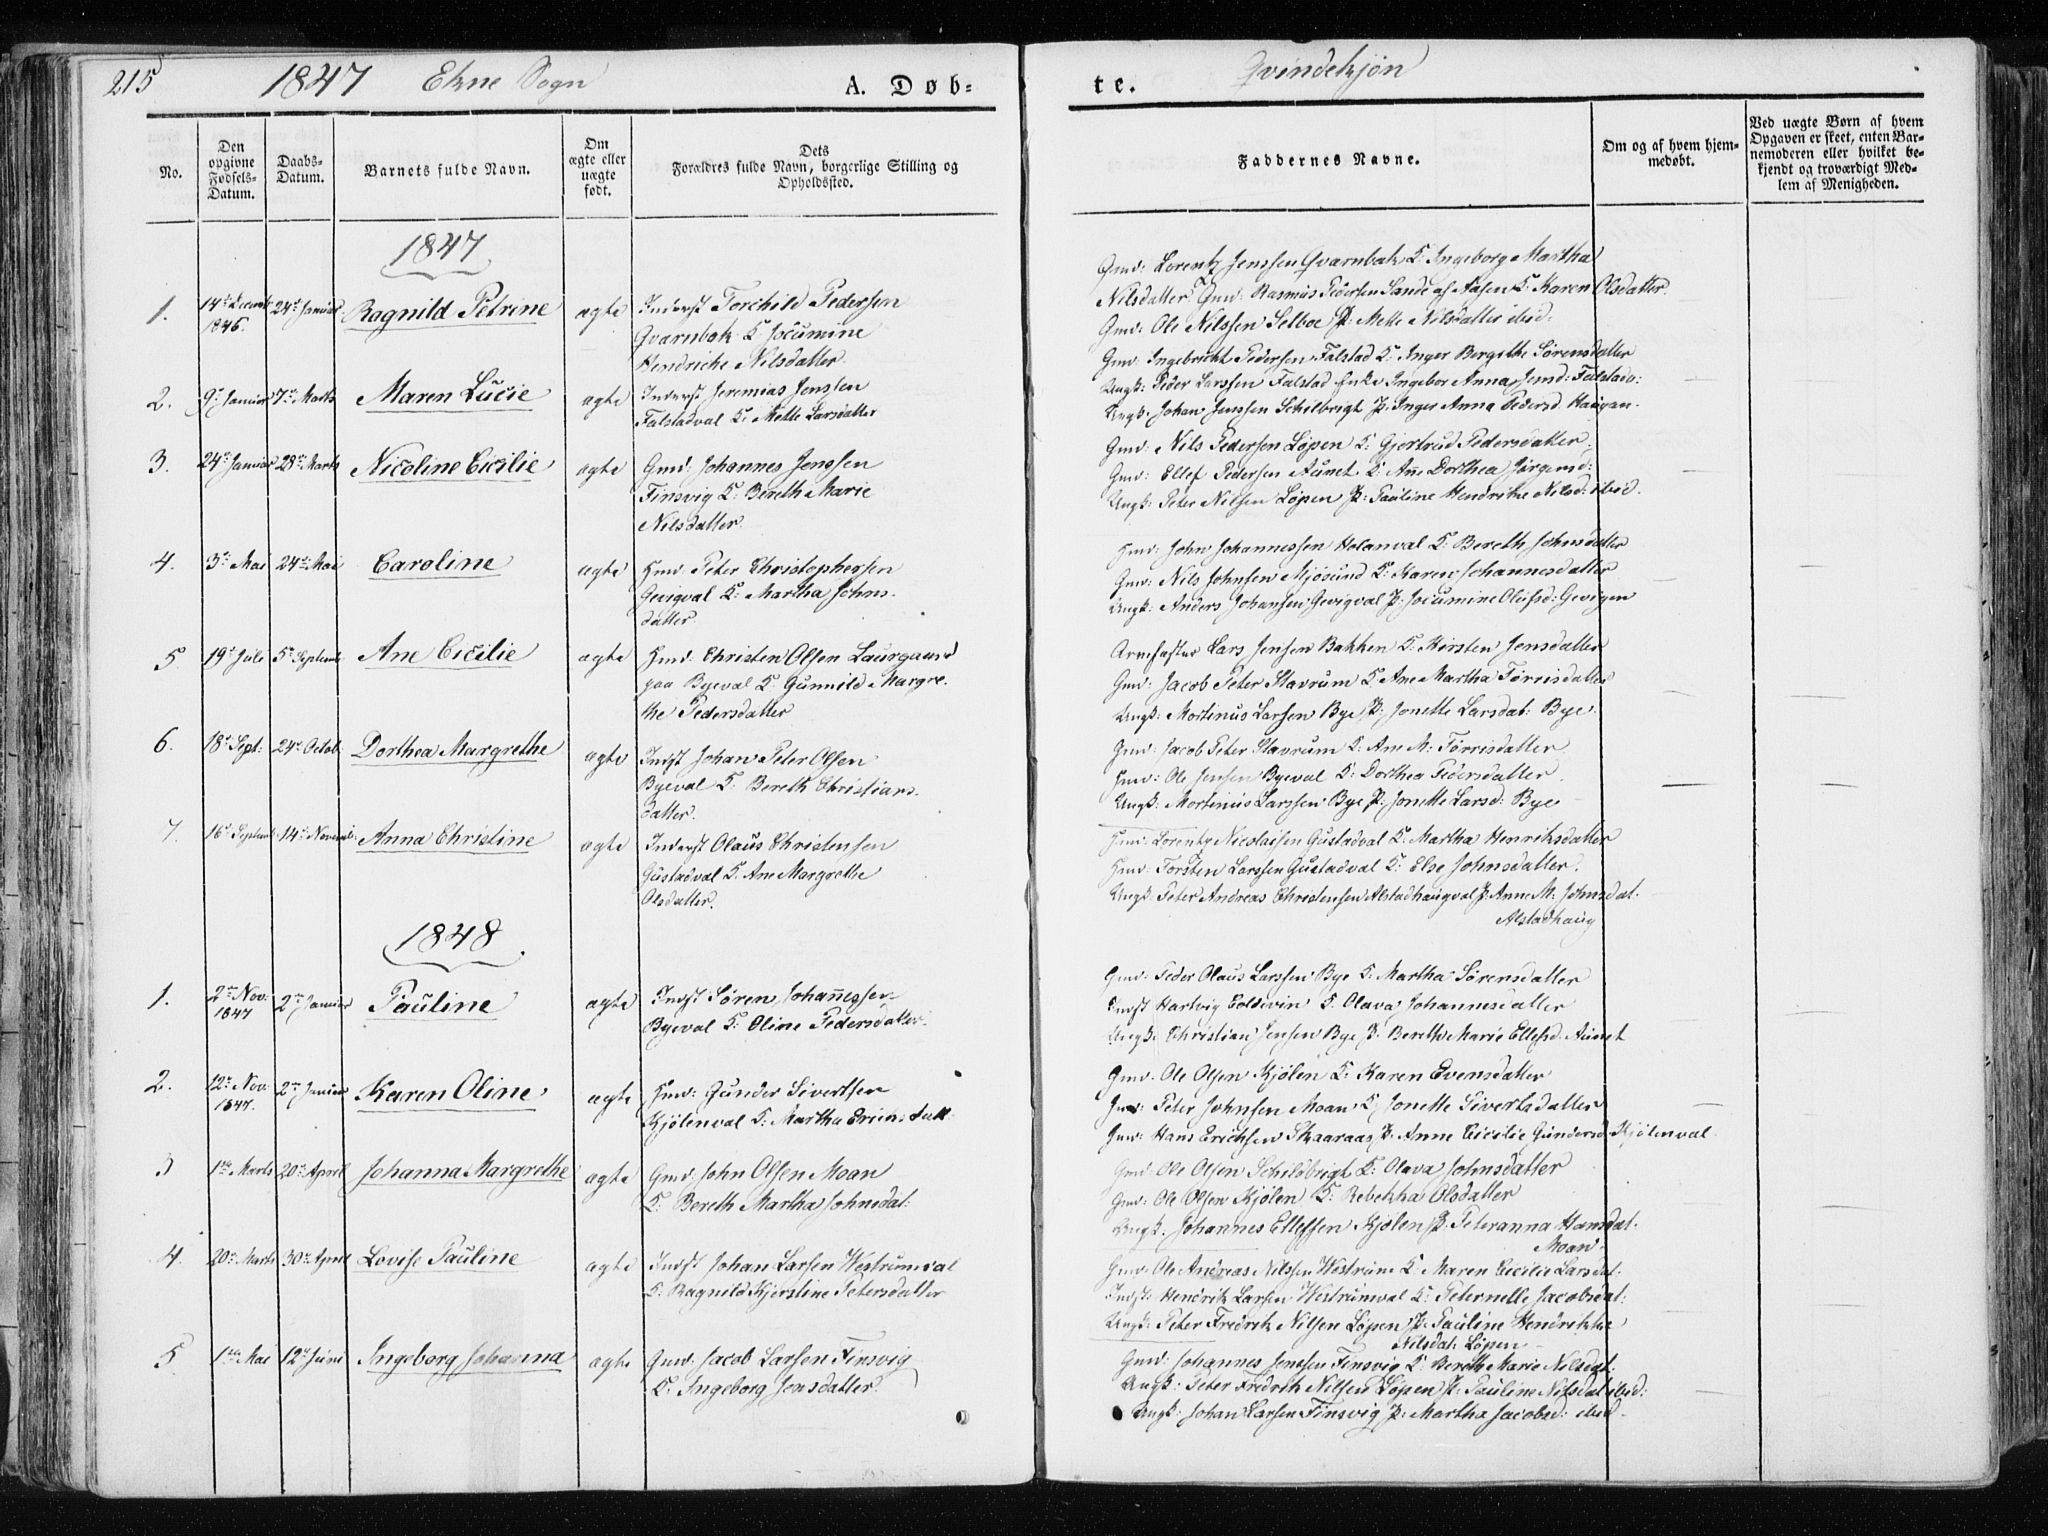 215
1847 Ekne Sogn
A. Døb-
te.
Qvindekjøn
No.
Den opgivne Fødsels-Datum.
Daabs-Datum.
Barnets fulde Navn.
Om ægte eller uægte født.
Dets
Forældres fulde Navn, borgerlige Stilling og
Opholdssted.
Faddernes Navne.
Om og af hvem hjem-
medøbt.
Ved uægte Børn af hvem
Opgaven er skeet, enten Bar-
nemoderen eller hvilket be-
kjendt og troværdigt Med-
lem af Menigheden.
1847
1. 14de Decemb 1846. 24de Januar Ragnild Petrine ægte
Inderst Torchild Pedersen
Qvarnbak K Jocumine
Hendriche Nilsdatter
Gmd: Lorentz Jenssen Qvarnbak K. Ingeborg Martha
Nilsdatter. Gmd: Rasmus Pedersen Sande af Aasen K. Karen Olsdatter.
Gmd: Ole Nilssen Selboe P: Mette Nilsdatter ibid.
2. 9de Januar 7de Marts Maren Lucie ægte
Inderst Jeremias Jenssen
Falstadval K. Mette Larsdatter
Gmd: Ingebricht Pedersen Falstad K. Inger Bergithe Sørensdatter
Ungk: Peder Larssen Falstad Enke Ingebor Anna Jensd: Falstadv:
Ungk: Johan Jenssen Schilbrigt P. Inger Anna Pedersd. Haugan.
3. 24de Januar 28de Marts Nicoline Cicilie ægte
Gmd: Johannes Jenssen
Finsvig K: Bereth Marie
Nilsdatter
Gmd: Nils Pedersen Løpen K: Gjertrud Pedersdatter
Gmd: Ellef Pedersen Aunet K. Ane Dorthea Jørgensd:
Ungk: Peter Nilsen Løpen P: Pauline Hendrikke Nilsd: ibid.
4. 3de Mai 24de Mai Caroline ægte
Hmd: Peter Christophersen
Gevigval K: Martha Johns-
datter
Hmd: John Johannessen Holanval K: Bereth Johnsdatter
Gmd: Nils Johnsen Mjøsund K: Karen Johannesdatter
Ungk: Anders Johansen Gevigval P. Jocumine Olufsd: Gevigen
5 19de Juli 5te Septemb Ane Cicilie ægte
Hmd: Christen Olsen Laurgaard
paa Byeval K. Gunnild Margre-
the Pedersdatter
Lars Jensen Bakken K. Kirsten Jensdatter
Gmd: Jacob Peter Stavrum K: Ane Martha Tørrisdatter
Ungk: Mortinus Larsen Bye P: Jonette Larsdat: Bye.
6. 18de Sept: 24de Octob. Dorthea Margrethe ægte
Indst Johan Peter Olsen
Byeval K. Bereth Christians-
datter.
Gmd: Jacob Peter Stavrum K: Ane M: Tørrisdatter
Hmd: Ole Jensen Byeval K: Dorthea Pedersdatter
Ungk: Mortinus Larssen Bye P: Jonette Larsd: Bye
7. 16de Septemb 14de Novemb. Anna Christine ægte
Inderst Olaus Christensen
Gustadval K. Ane Margrethe
Olsdatter.
Hmd: Lorentz Nicolaisen Gustadval K: Martha Henriksdatter
Hmd: Torsten Larssen Gustadval K. Else Johnsdatter.
Ungk: Peter Andreas Christensen Alstadhaugval P: Anne M: Johnsdat.
Alstadhaug
1848
1. 2den Nov: 1847 2den Januar Pauline ægte
Indst Søren Johannessen
Byeval K: Oline Pedersdatter
Gmd: Peder Olaus Larssen Bye K: Martha Sørensdatter
Indst Hartvig Coldevin K. Olava Johannesdatter
Ungk: Christian Jensen Bye P. Bereth Marie Ellefsd. Aunet
2. 12te Nov. 1847. 2den Januar Karen Oline ægte
Hmd: Gunder Sivertsen
Kjølenval K: Martha Erichsdatt.
Gmd. Ole Olsen Kjølen K: Karen Evensdatter
Gmd: Peter Johnsen Moan K: Jonette Sivertsdatter
Gmd: Hans Erichsen Skaaraas P. Anne Cicilie Gundersd Kjølenval.
3 1ste Marts 20de April Johanna Margrethe ægte
Gmd: John Olsen Moan
K: Bereth Martha Johnsdat:
Gmd: Ole Olsen Schilbrigt K: Olava Johnsdatter
Gmd: Ole Olsen Kjølen K: Rebekka Olsdatter
Ungk: Johannes Ellefsen Kjølen P. Peteranna Hansdat.
Moan.
4. 20de Marts 30de April Lovise Pauline ægte
Indst Johan Larsen Westrumval
K: Ragnild Kjerstine Petersdatter
Gmd: Ole Andreas Nilssen Westrum K. Maren Cicilie Larsdat.
Indst: Hendrik Larsen Westrumval K. Peternelle Jacobsdat:
Ungk: Peter Fredrik Nilsen Løpen P. Pauline Hendrikke
Nilsdat. Løpen
5 1ste Mai 12te Juni Ingeborg Johanna ægte
Gmd: Jacob Larsen Finsvig
K. Ingeborg Jensdatter
Gmd: Johannes Jenssen Finsvig K. Bereth Marie Nilsdat.
Ungk: Peter Fredrik Nilsen Løpen P: Pauline Nilsdat ibid:
Ungk: Johan Larsen Finsvig P: Martha Jacobsd: ibid.